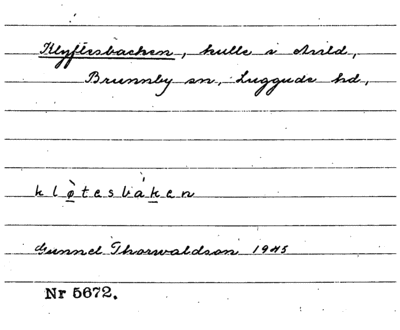 Klyftesbacken, kulle i Arild,
Brunnby sn, Luggude hd,
klø̠̀tesbák̠en
Gunnel Thorwaldson 1945
Nr 5672.